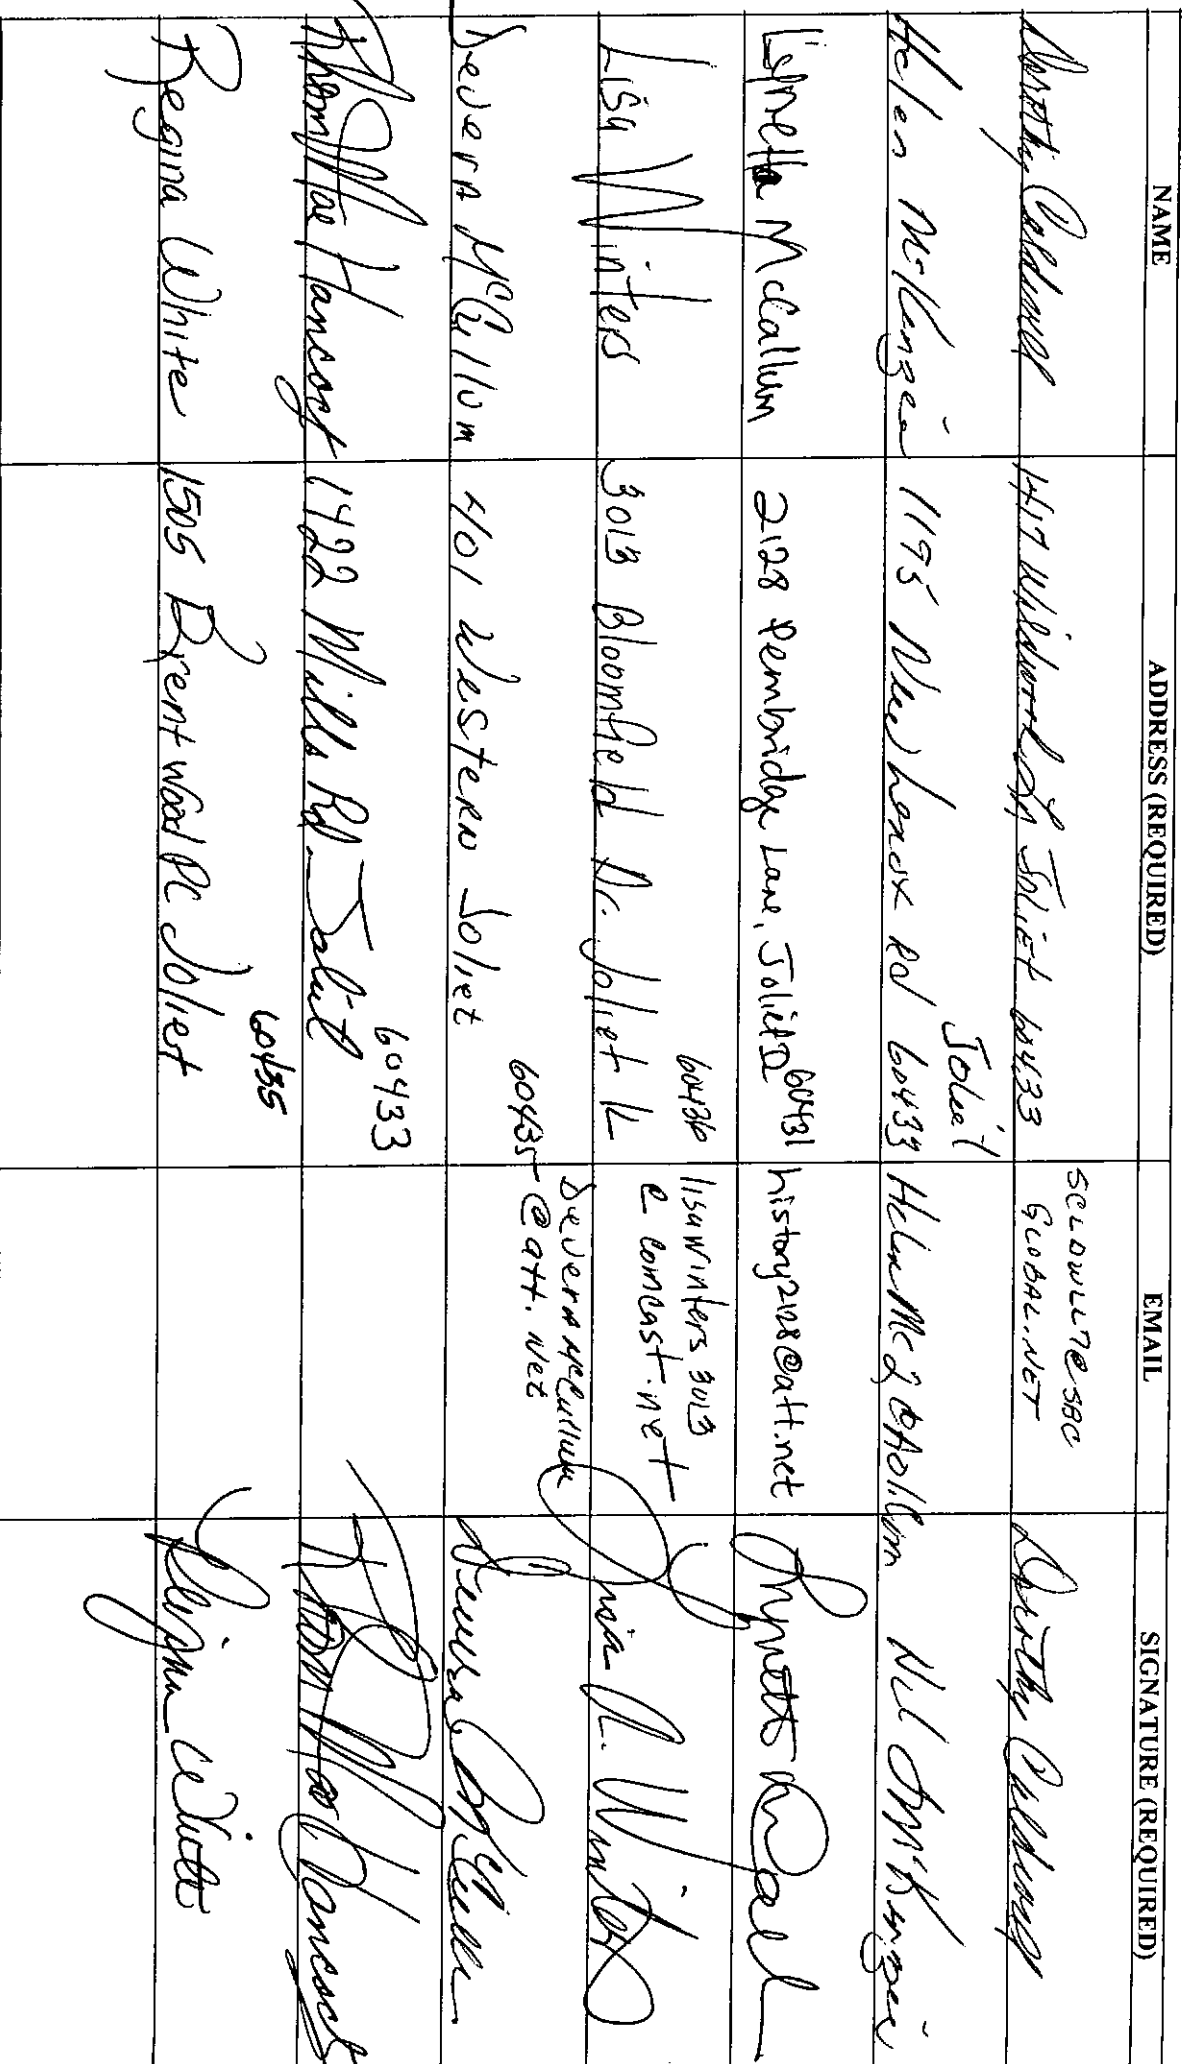 NAME ADDRESS (REQUIRED) EMAIL SIGNATURE (REQUIRED)
Dorothy Caldwell 1417 Joliet 60433 SCLDWLL7@SBC GLOBAL.NET Dorothy Caldwell
Helen 1195 New Lenox Rd Joliet 60433
McCallum 2128 Pembridge Lane, Joliet Il 60431 history2128@att.net
Lisa Winters 3013 Bloomfield Dr. Joliet IL 60436 lisawinters3013 @ comcast.net Lisa R. Winters
Severa McCullum 401 Western Joliet 60435 SeveraMcCullum @att.net
Mae Hancock 1422 Mills Rd. Joliet 60433 Mae Hancock
Regina White 1505 Brentwood Pl Joliet 60435 Regina White